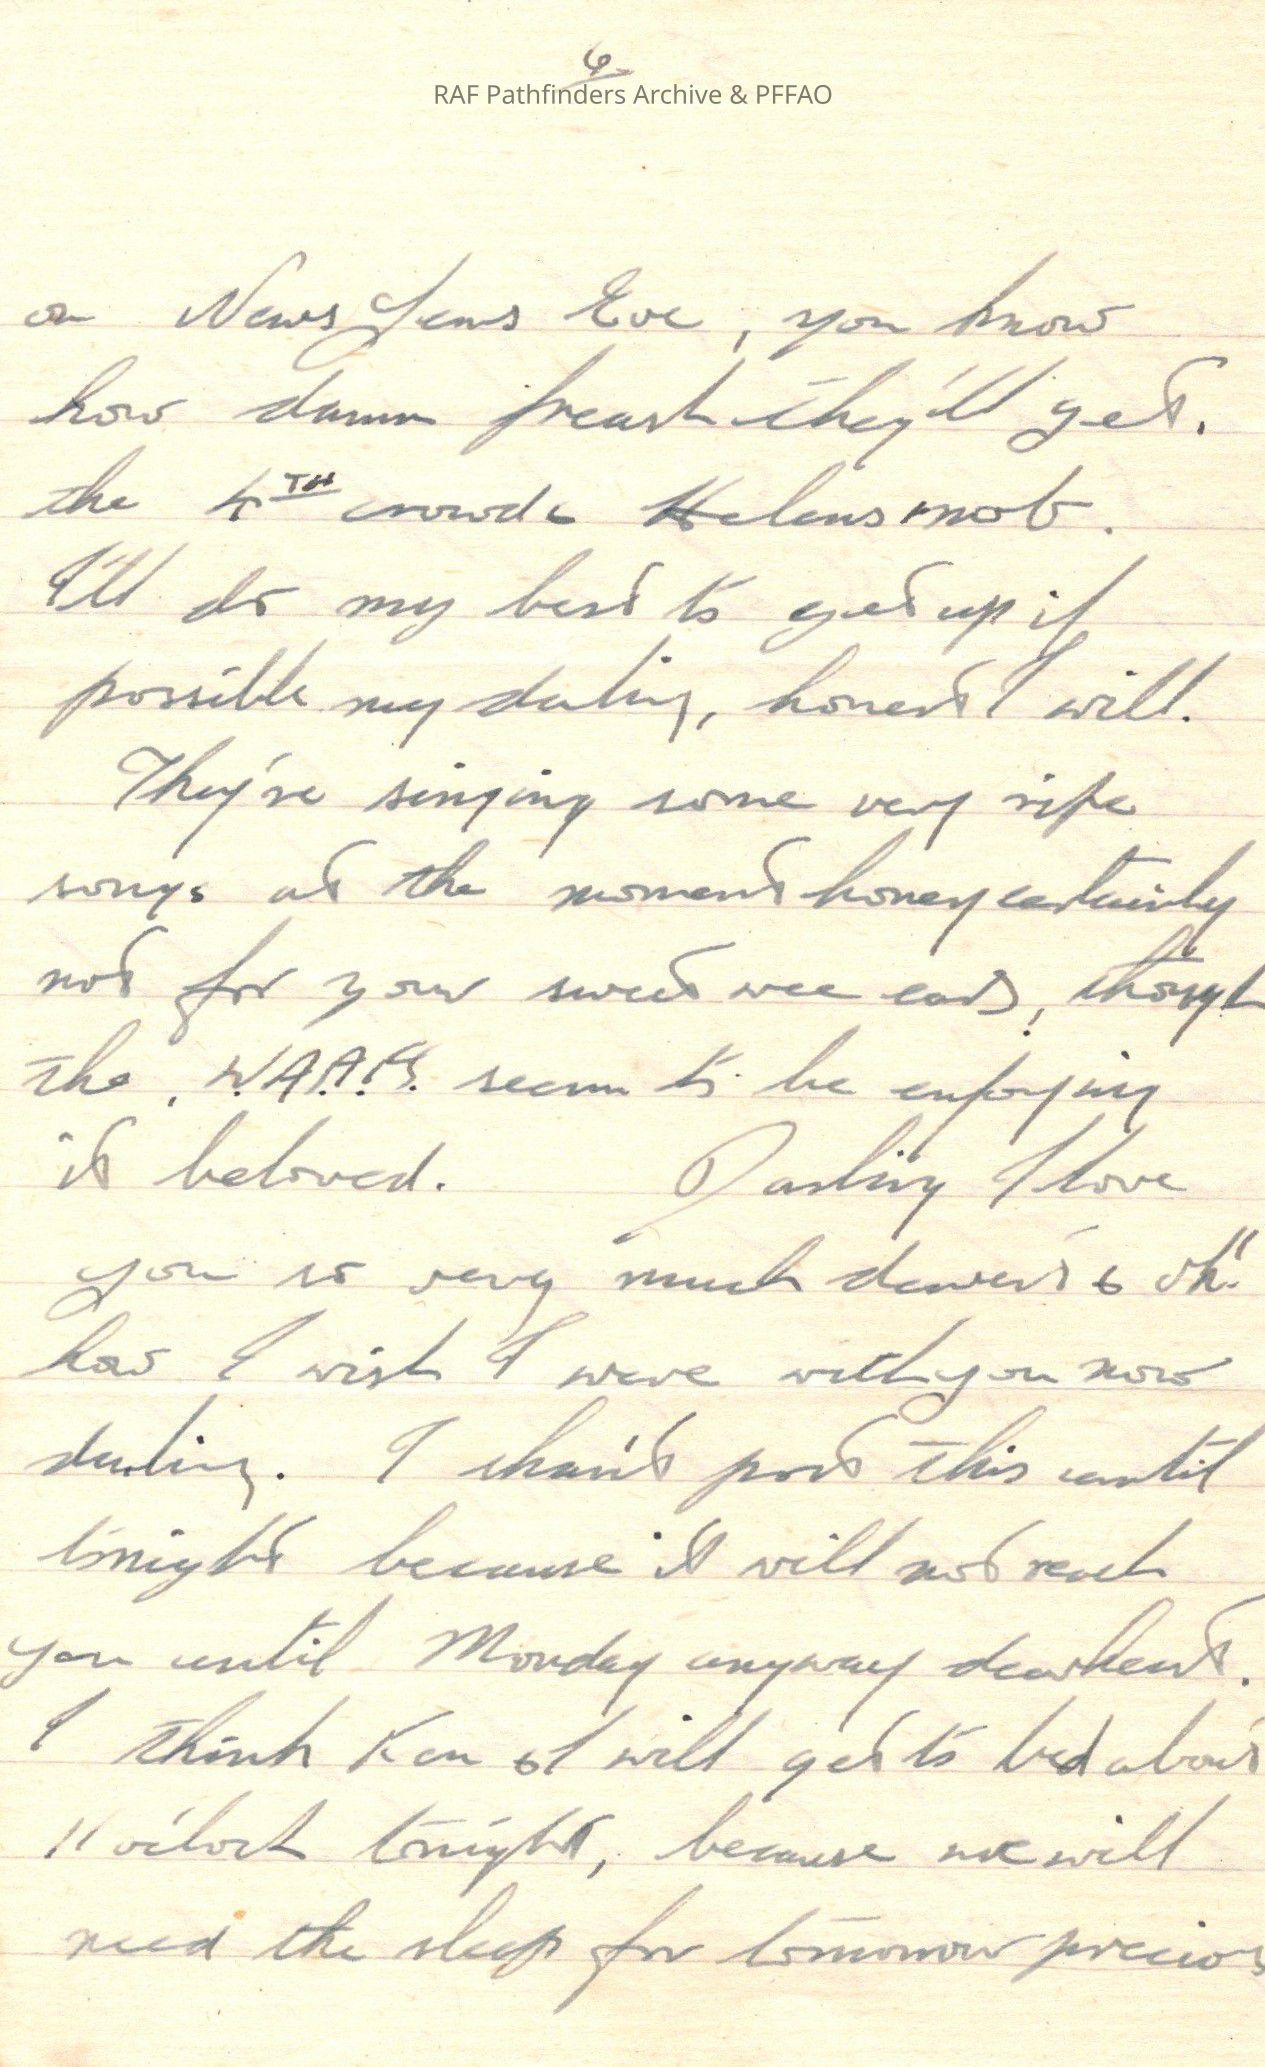 6.
RAF Pathfinders Archive & PFFAO
on News Years Eve, you know
how damn freash they'll get.
the 4TH crowd & Helens mob.
I'll do my best to get up if
possible my darling, honest I will.
They're singing some very ripe
songs at the moment honey certainly
not for your sweet wee ears, though
the W.A.A.F.S. seem to be enjoying
it beloved. Darling I love
you so very much dearest & oh!!
how I wish I were with you now
darling. I shan't post this until
tonight because it will not reach
you until Monday anyway dearheart.
I think Ken & I will get to bed about
11 o'clock tonight, because we will
need the sleep for tomorrow precious